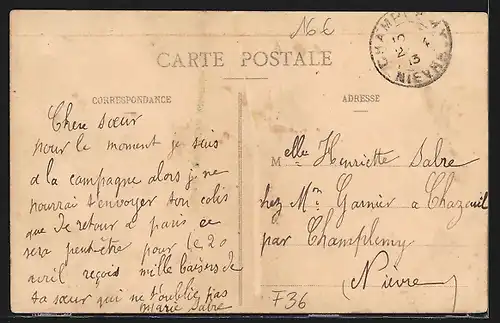 16€
CARTE POSTALE
CORRESPONDANCE
ADRESSE
Chere sœur
pour le moment je suis
a la campagne alors je ne
pourrai t'envoyer ton colis
que de retour a paris ce
sera peut-être pour le 20
avril reçois mille baisers de
ta sœur qui ne t'oublie pas
marie Sabre
Melle Henriette Sabre
chez Mr Garnier a Chazeuil
par Champlemy
(Nièvre)
F36